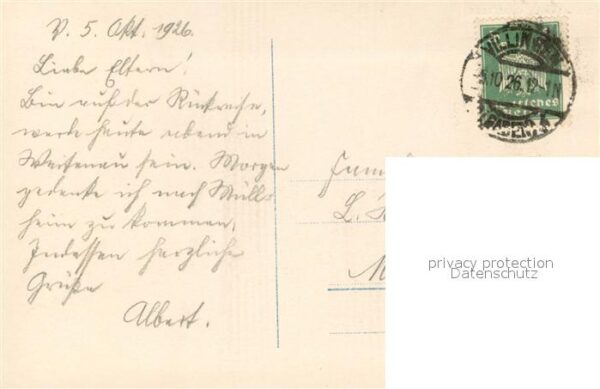 V. 5. Okt. 1926.
Liebe Eltern!
Bin auf der Rückreise,
werde heute abend in
Weitenau sein. Morgen
gedenke ich nach Müll-
heim zu kommen.
Indessen herzliche
Grüße
Albert.
VILLINGEN
5.10.26.
(BADEN)
Deutsches
Reich
Fami
L. 
M
privacy protection
Datenschutz